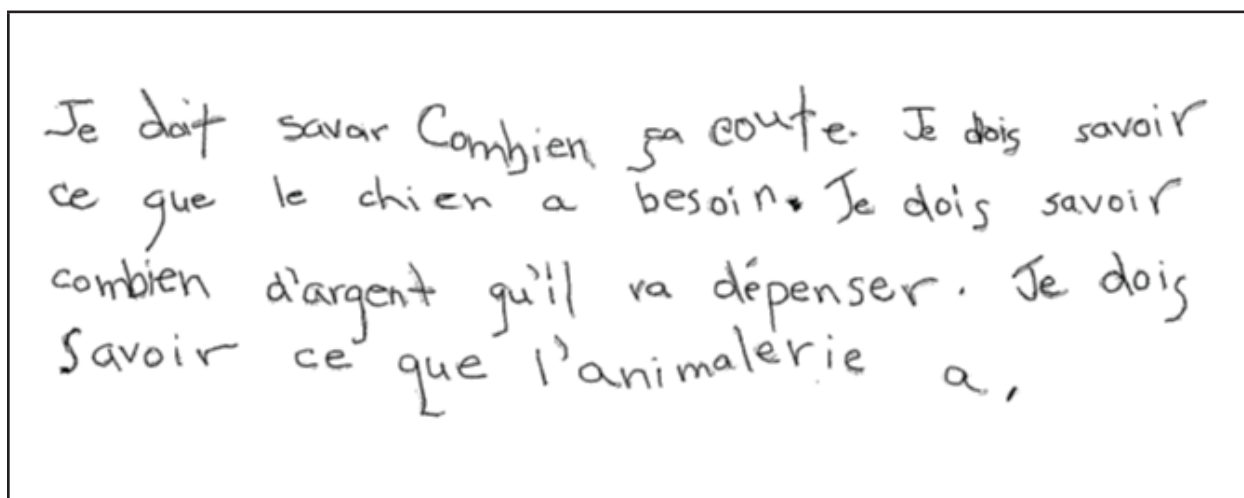 Je doit savoir Combien ça coute. Je dois savoir
ce que le chien a besoin. Je dois savoir
combien d'argent qu'il va dépenser. Je dois
Savoir ce que l'animalerie a,